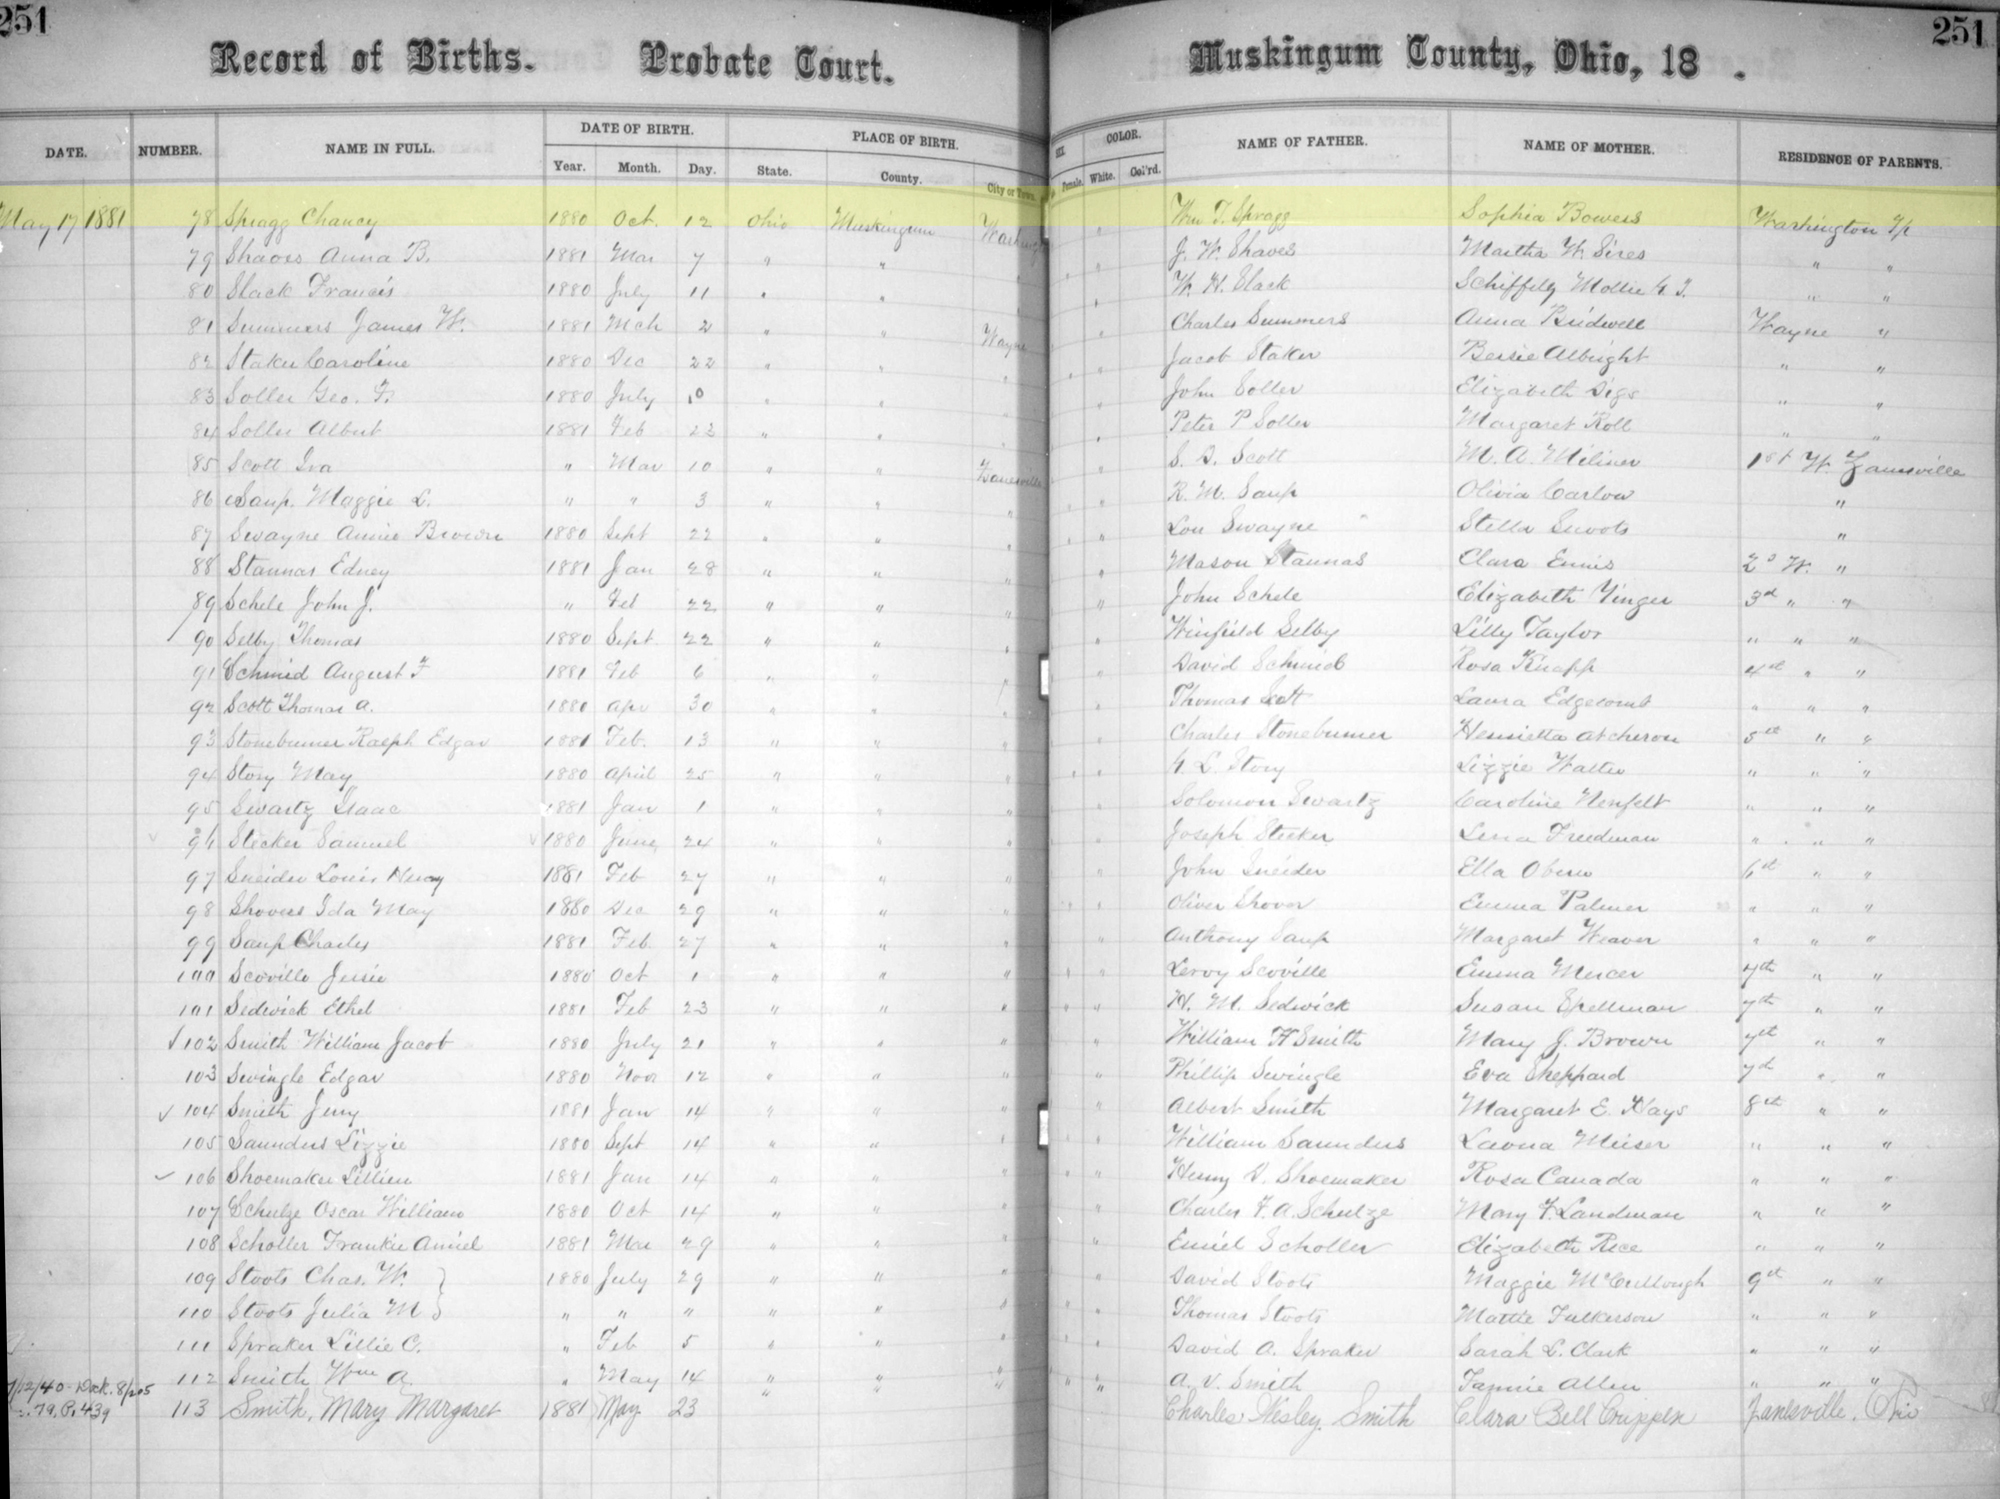 251 251
Record of Births. Probate Court. Muskingum County, Ohio, 18 .
DATE. NUMBER. NAME IN FULL. DATE OF BIRTH. PLACE OF BIRTH. SEX COLOR. NAME OF FATHER. NAME OF MOTHER. RESIDENCE OF PARENTS.
Year. Month. Day. State. County. City or Town. Female. White. Col'rd.
May 17 1881 78 Spragg Chancy 1880 Oct. 12 Ohio Muskingum Wm T. Spragg Sophia Bowers Washington Tp
79 Shaves Anna B. 1881 Mar 7 " " " J. W. Shaves Martha W. Sires " "
80 Slack Francis 1880 July 11 " " W. H. Slack Schiffely Mollie " "
81 Summers James W. 1881 Mch 2 " " Wayne Charles Summers Anna Bridwell Wayne "
82 Staker Caroline 1880 Dec 22 " " " Jacob Staker Bersie Albright " "
83 Soller Geo. F. 1880 July 10 " " " John Soller Elizabeth Digs " "
84 Soller Albert 1881 Feb 23 " " " Peter P Soller Margaret Roll " "
85 Scott Iva " Mar 10 " " Zanesville S. D. Scott M. A. Miliner 1st W. Zanesville
86 Saup. Maggie L. " " 3 " " " R. M. Saup Olivia Carlow "
87 Swayne Annie Brown 1880 Sept 22 " " " Lou Swayne Stella Swoots "
88 Stannas Edney 1881 Jan 28 " " " Mason Stannas Clara Ennis 2d W. "
89 Schele John J. " Feb 22 " " " John Schele Elizabeth Yinger 3d " "
90 Selby Thomas 1880 Sept. 22 " " " Winfield Selby Lilly Taylor " " "
91 Schmid August F 1881 Feb 6 " " " David Schmid Rosa Knapp 4th " "
92 Scott Thomas A. 1880 Apr 30 " " " Thomas Scott Laura Edgecomb " " "
93 Stoneburner Ralph Edgar 1881 Feb. 13 " " " Charles Stoneburner Henrietta Atcherson 5th " "
94 Story May 1880 April 25 " " " L. Story Lizzie Walter " " "
95 Swartz Isaac 1881 Jan 1 " " " Solomon Swartz Caroline Henfelt " " "
96 Stecker Samuel 1880 June 24 " " " Joseph Stecker Lena Freedman " " "
97 Sneider Louis Henry 1881 Feb 27 " " " John Sneider Ella 6th " "
98 Shovers Ida May 1880 Dec 29 " " " Oliver Shover Emma Palmer " " "
99 Saup Charles 1881 Feb. 27 " " " Anthony Saup Margaret Weaver " " "
100 Scoville Jessie 1880 Oct 1 " " " Leroy Scoville Emma Mercer 7th " "
101 Sedwick Ethel 1881 Feb 23 " " " H. M. Sedwick Susan Spellman 7th " "
102 Smith William Jacob 1880 July 21 " " " William H Smith Mary J. Brown 7th " "
103 Swingle Edgar 1880 Nov 12 " " " Phillip Swingle Eva Sheppard 7th " "
104 Smith Jeny 1881 Jan 14 " " " Albert Smith Margaret E. Hays 8th " "
105 Saunders Lizzie 1880 Sept 14 " " " William Saunders Leona Meiser " " "
106 Shoemaker Lillien 1881 Jan 14 " " " Henry D. Shoemaker Rosa Canada " " "
107 Schulze Oscar William 1880 Oct 14 " " " Charles F. A. Schulze Mary F. Landman " " "
108 Scholler Frankie Amiel 1881 Mar 29 " " " Emiel Scholler Elizabeth Rice " " "
109 Stoots Chas. W. 1880 July 29 " " " David Stoots Maggie McCullough 9th " "
110 Stoots Julia M " " " " " " Thomas Stoots Mattie Fulkerson " " "
111 Spraker Lillie C. " Feb 5 " " " David A. Spraker Sarah L. Clark " " "
112 Smith Wm A. " May 14 " " " A. V. Smith Fannie Allen " " "
7/12/40 - Dock. 8/205
79, P. 439 113 Smith, Mary Margaret 1881 May 23 " " " Charles Wesley Smith Clara Bell Crippen Zanesville, Ohio